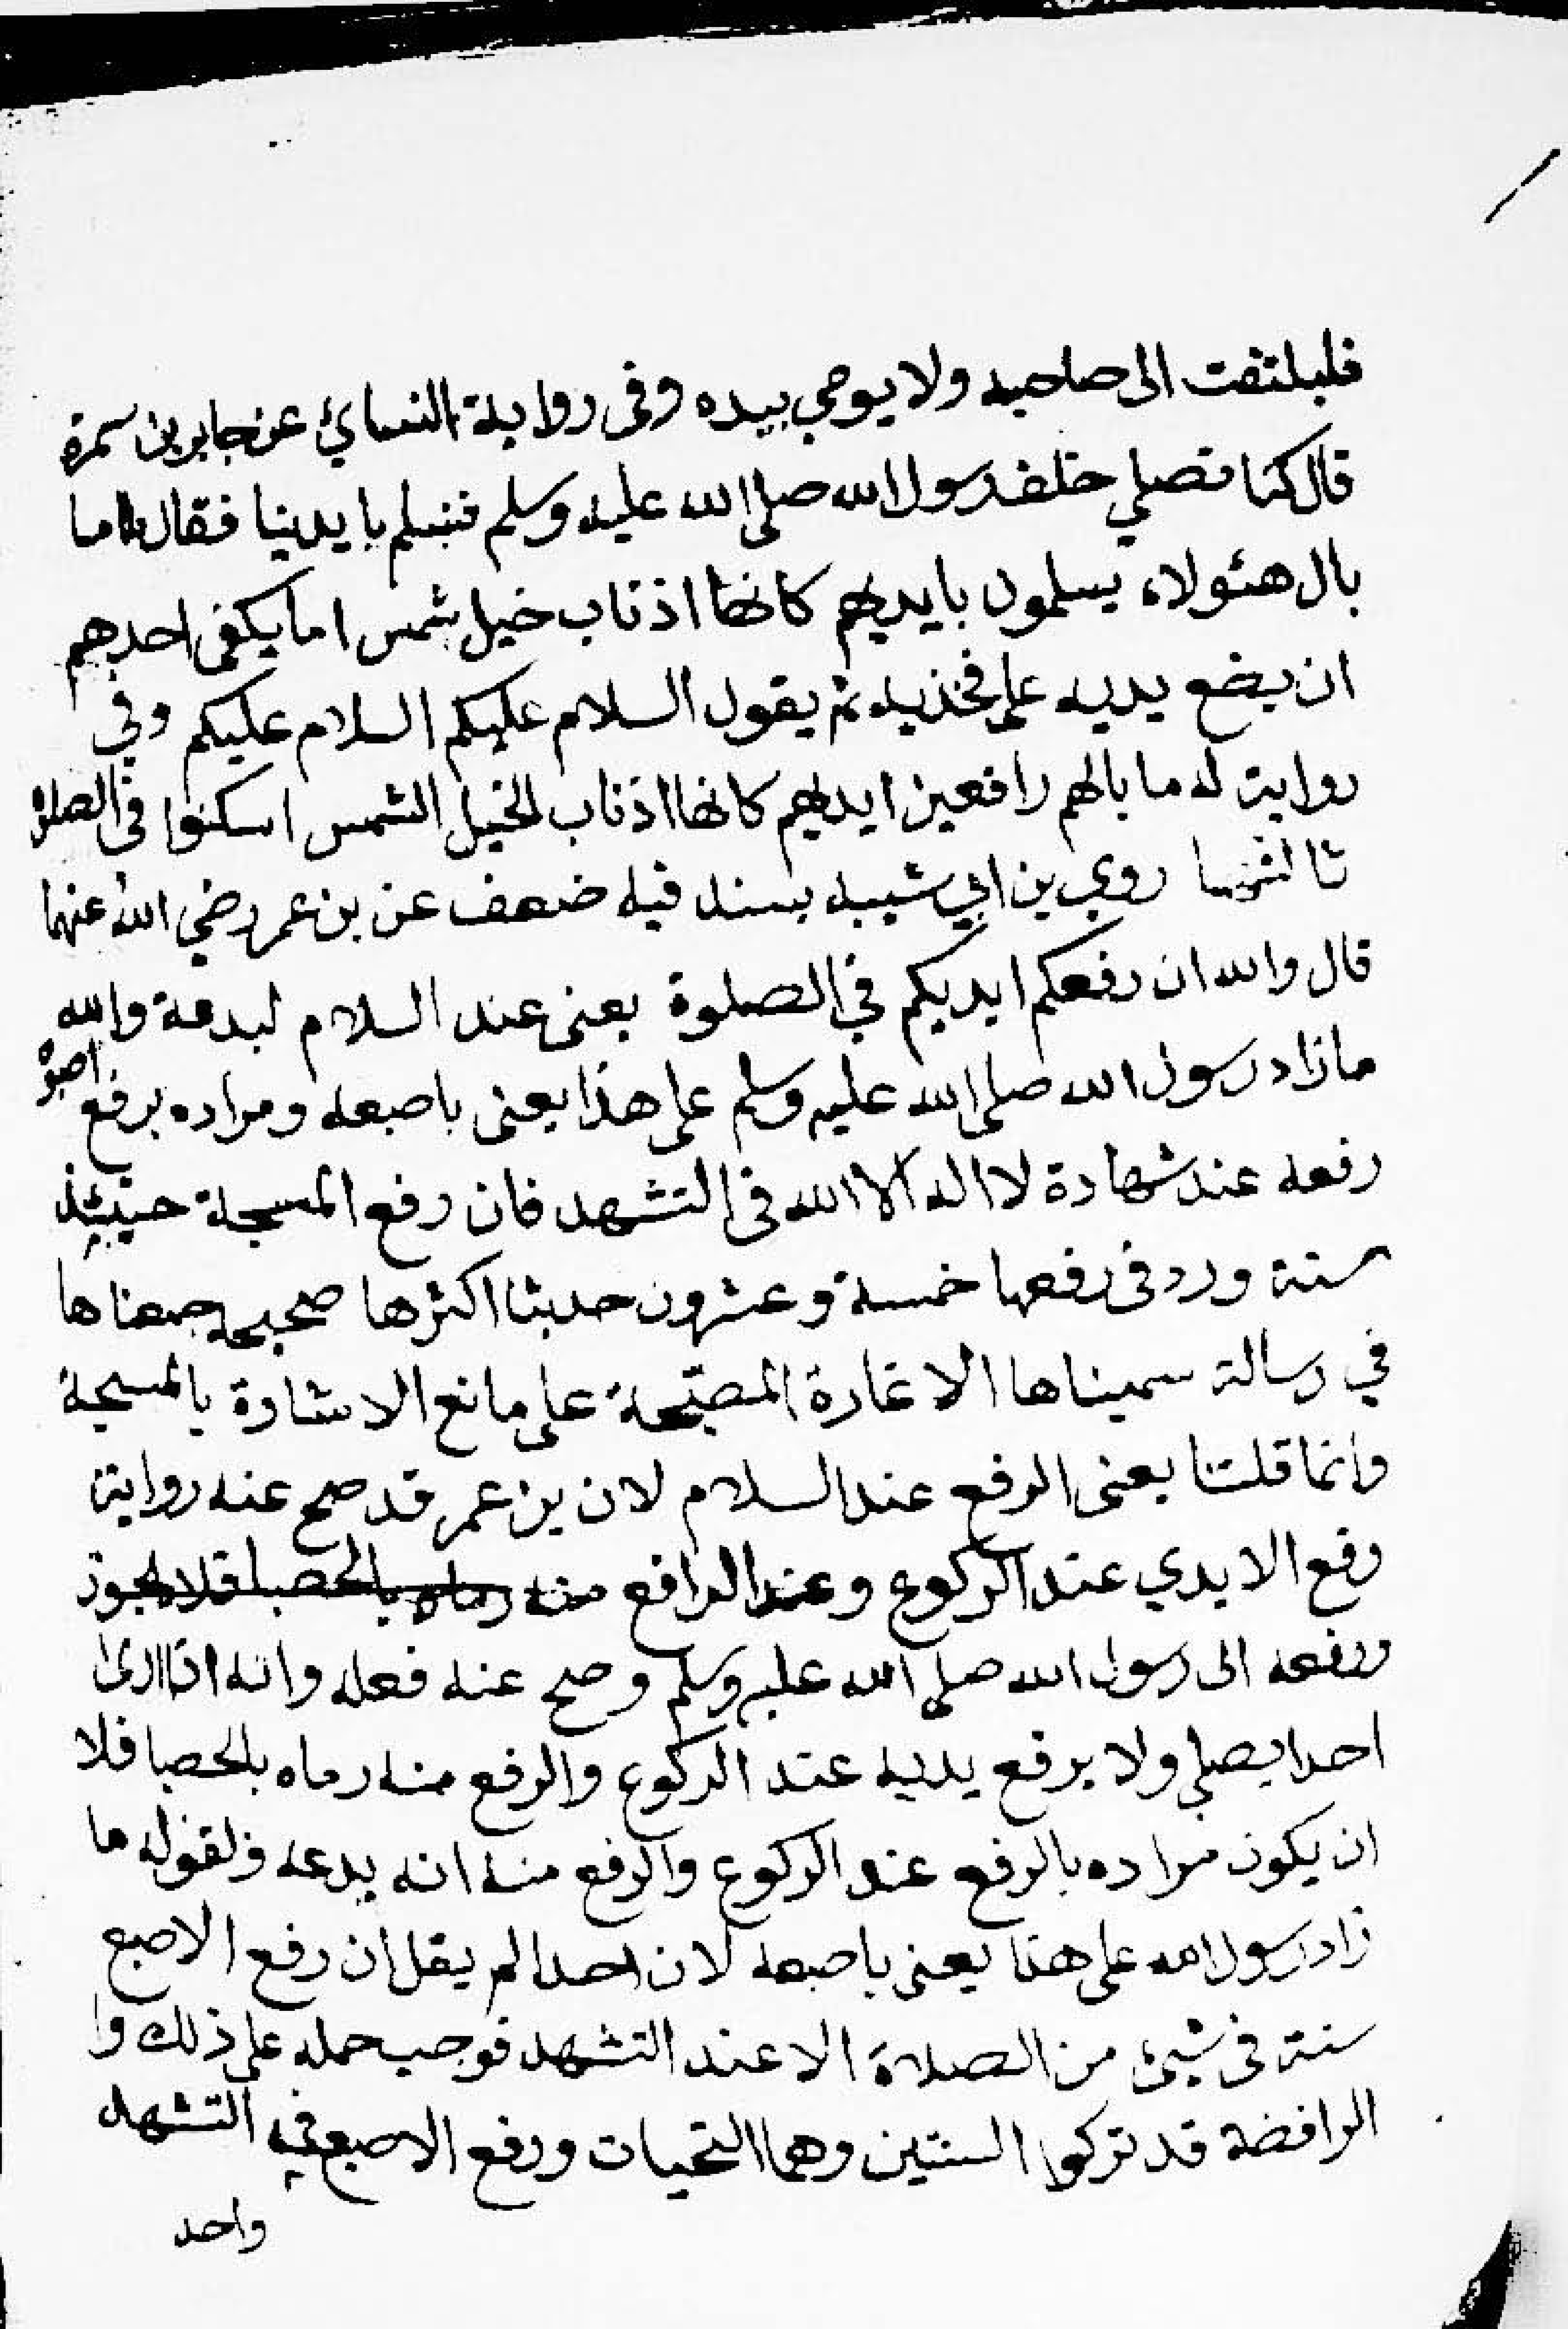 فليلتفت الى صاحبه ولا يومي بيده وفى رواية النسائ عن جابر بن سمرة
قال كنا نصلي خلف رسول الله صلى الله عليه وسلم فنسلم بايدينا فقال ما
بال هئولاء يسلمون بايديهم كانها اذناب خيل شمس اما يكفى احدهم
ان يضع يديه على فخذيه ثم يقول السلام عليكم السلام عليكم وفي
رواية له ما بالهم رافعين ايديهم كانها اذناب الخيل الشمس اسكنوا فى الصلوة
ثالثها روي بن ابي شيبه بسند فيه ضعف عن بن عمر رضي الله عنهما
قال والله ان رفعكم ايديكم في الصلوة يعنى عند السلام لبدعة والله
ما زاد رسول الله صلى الله عليه وسلم على هذا يعنى باصبعه ومراده برفع اصبعه
رفعه عند شهادة لا اله الا الله فى التشهد فان رفع المسبحة حينيئذ
سنة ورد فى رفعها خمسة وعشرون حديثا اكثرها صحيحه جمعناها
في رسالة سميناها الاغارة المصبحة على مانع الاشارة بالمسبحة
وانما قلنا يعنى الرفع عند السلام لان بن عمر قد صح عنه رواية
رفع الايدي عند الركوع وعند الرافع منه رماه بالحصبا فلا يجوز
ورفعه الى رسول الله صلى الله عليه وسلم وصح عنه فعله وانه اذا ارى
احدا يصلي ولا يرفع يديه عند الركوع والرفع منه رماه بالحصبا فلا
ان يكون مراده بالرفع عند الركوع والرفع منه انه بدعه ولقوله ما
زاد رسول الله على هذا يعنى باصبعه لان احدا لم يقل ان رفع الاصبع
سنة فى شيئ من الصلاة الا عند التشهد فوجب حمله على ذلك وا
الرافضة قد تركوا السنتين وهما التحيات ورفع الاصبع في التشهد
واحد